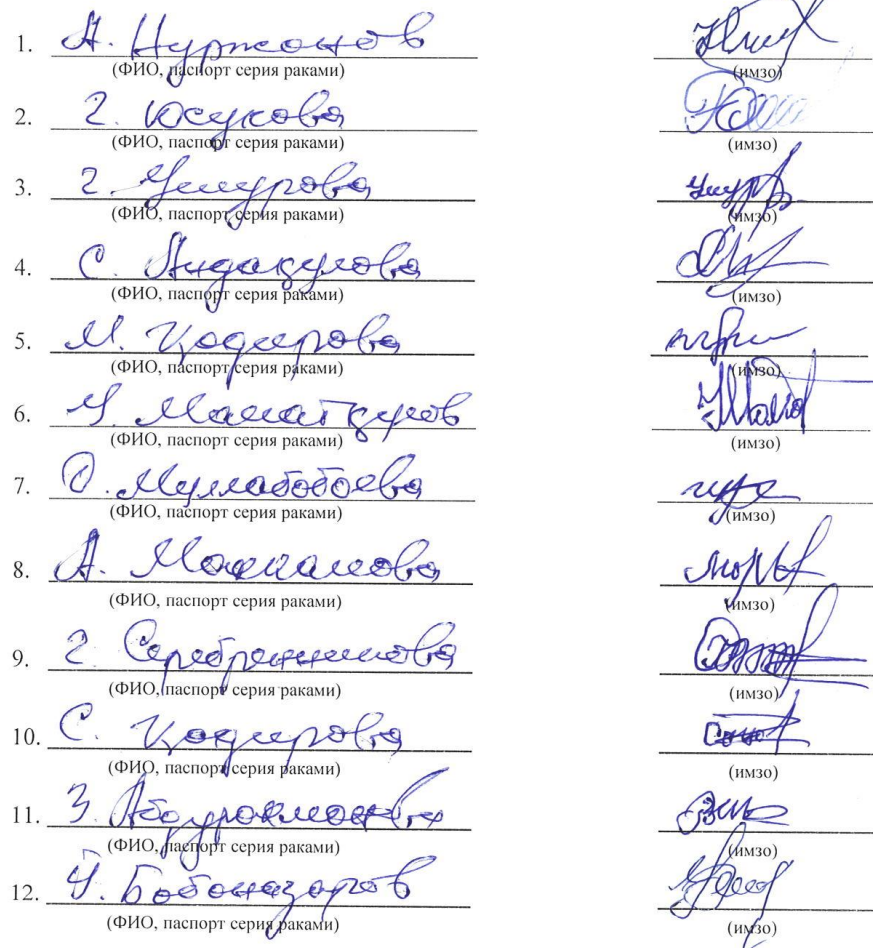 1. А. Нуржонов
(ФИО, паспорт серия раками) (имзо)
2. Г. Юсупова
(ФИО, паспорт серия раками) (имзо)
3. Г. Умурова
(ФИО, паспорт серия раками) (имзо)
4. С. Андакулова
(ФИО, паспорт серия раками) (имзо)
5. М. Кодирова
(ФИО, паспорт серия раками) (имзо)
6. У. Маматкулов
(ФИО, паспорт серия раками) (имзо)
7. О. Муллабобоева
(ФИО, паспорт серия раками) (имзо)
8. А. Махкамова
(ФИО, паспорт серия раками) (имзо)
9. Г. Серебренникова
(ФИО, паспорт серия раками) (имзо)
10. С. Кодирова
(ФИО, паспорт серия раками) (имзо)
11. З.
(ФИО, паспорт серия раками) (имзо)
12. Ў. Бобоназаров
(ФИО, паспорт серия раками) (имзо)